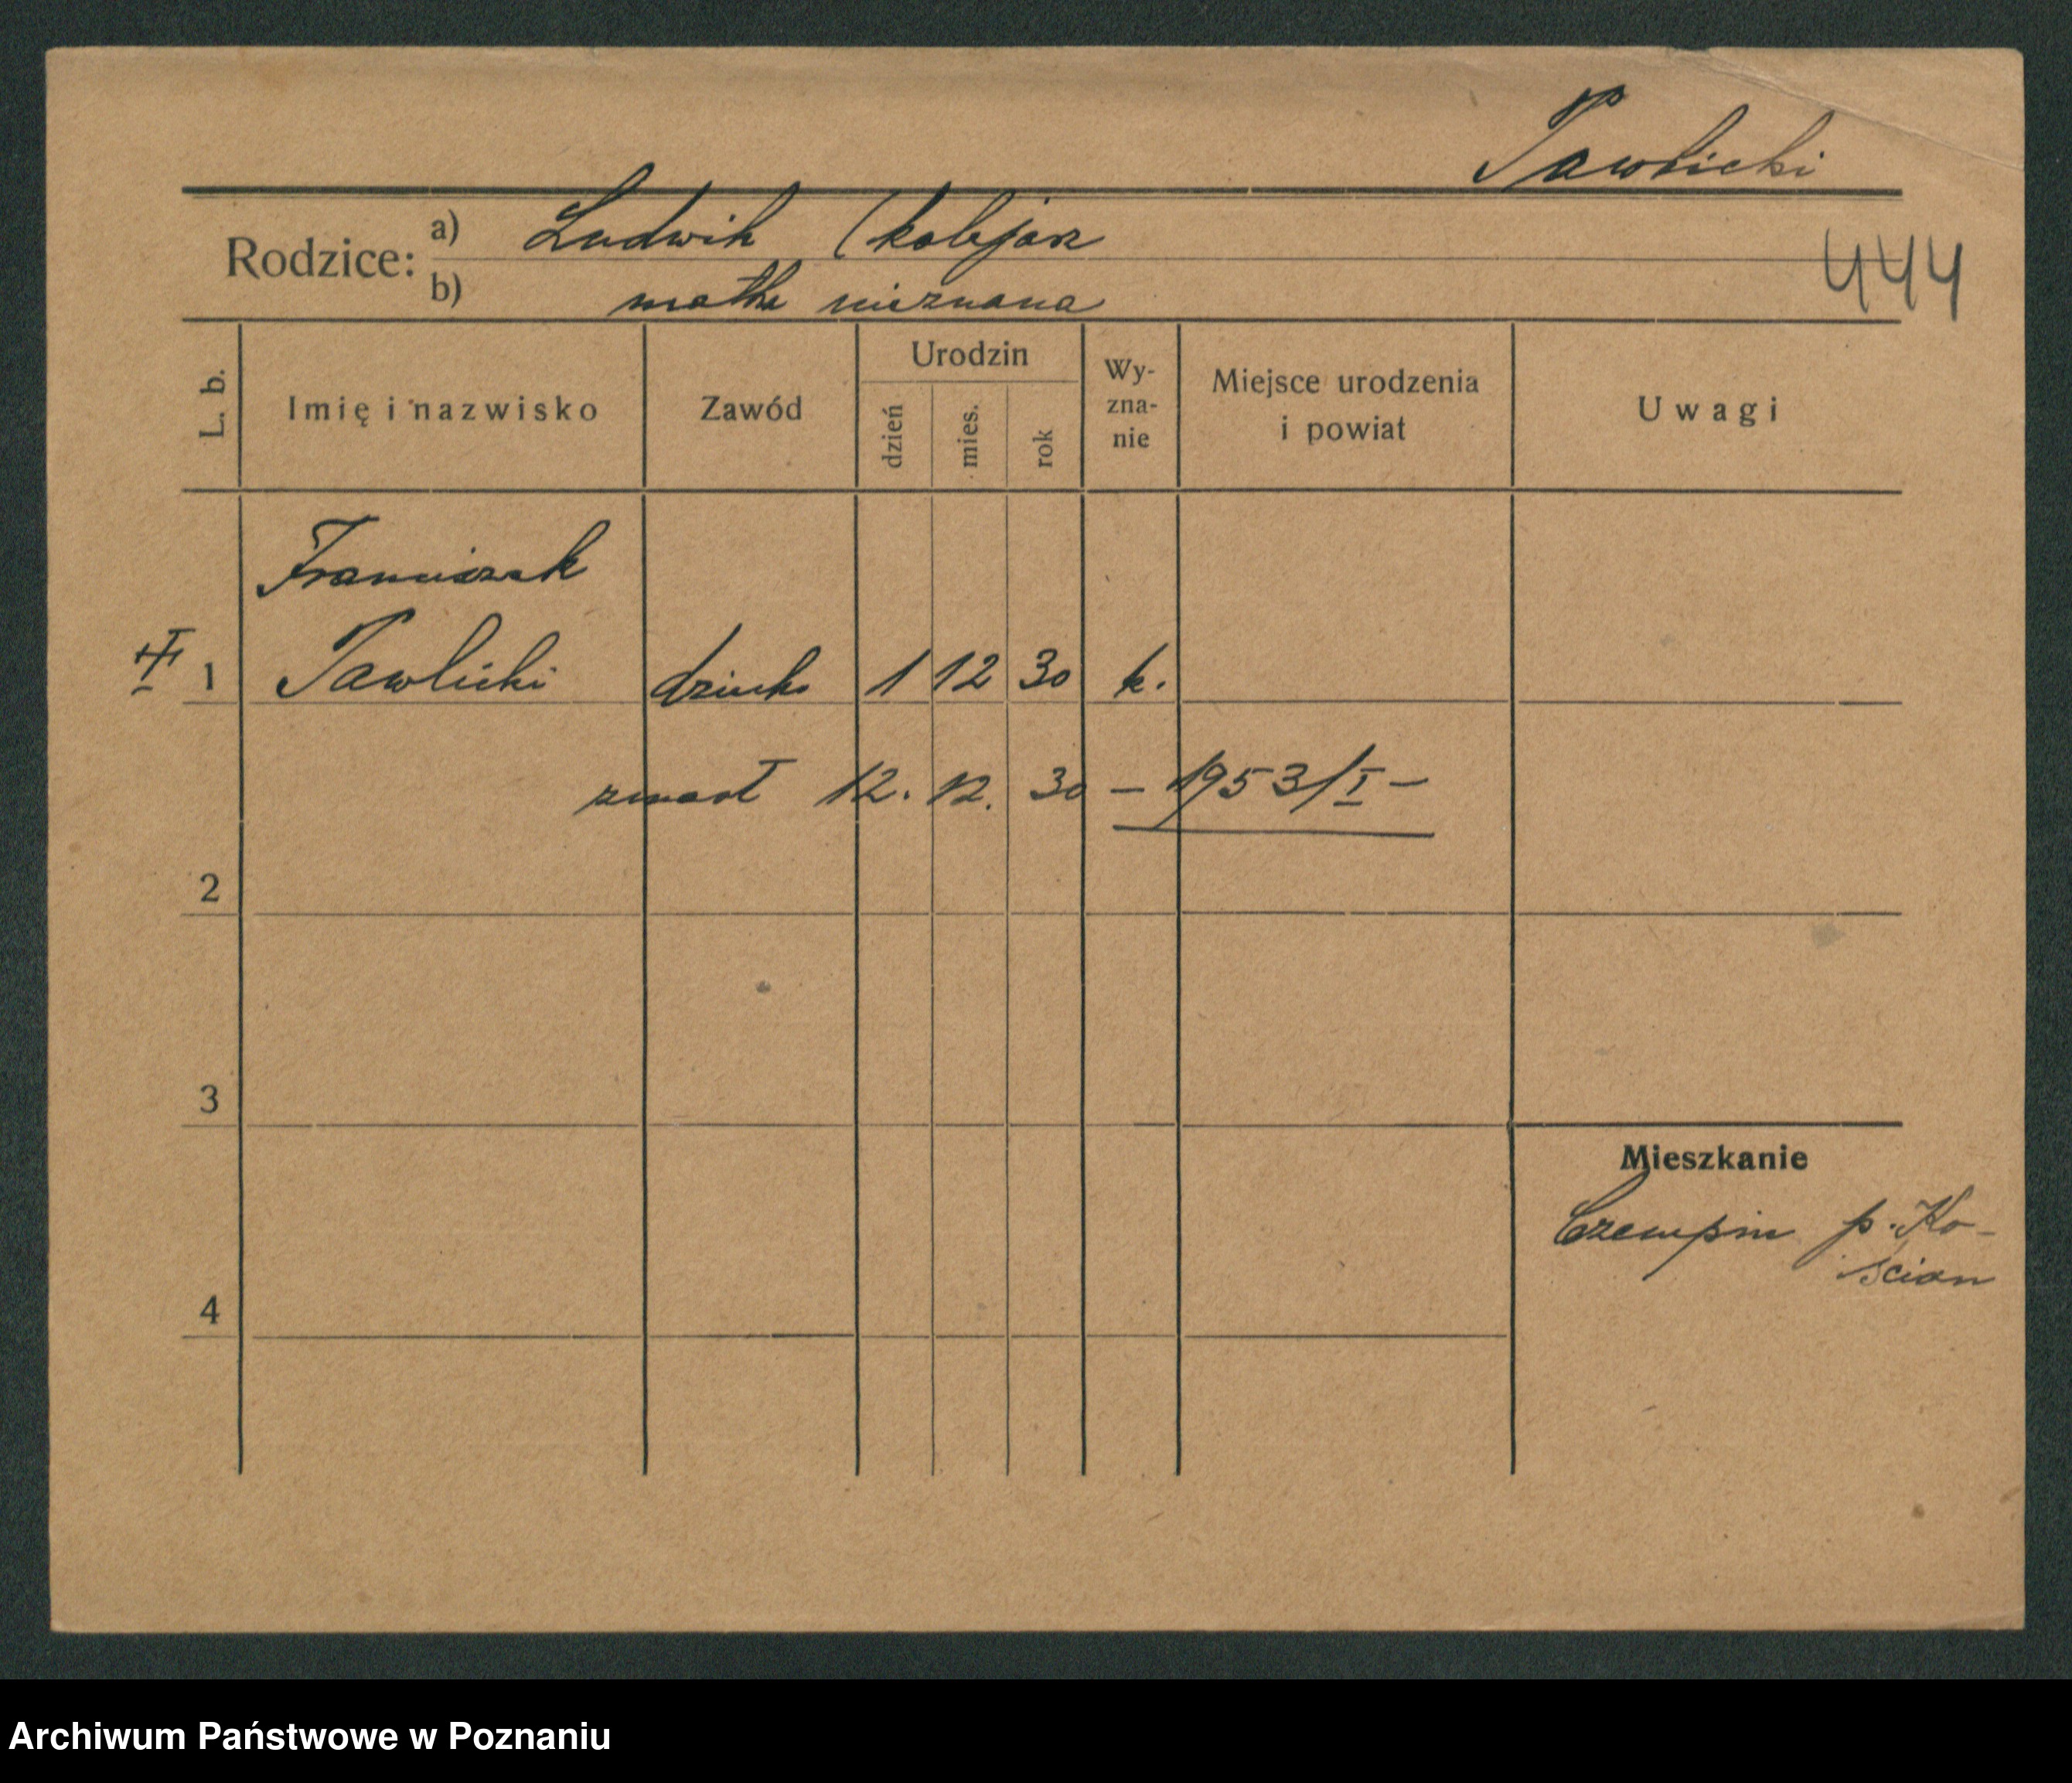 Pawlicki
Rodzice: a) Ludwik (kolejarz
b) matka nieznana
444
L. b. Imię i nazwisko Zawód Urodzin dzień mies. rok Wy-zna-nie Miejsce urodzenia i powiat Uwagi
Franciszek
1 Pawlicki dziecko 1 12 30 k.
zmarł 12. 12. 30 – 1953/I –
2
3
Mieszkanie
Czempin p. Ko-
ścian
4
Archiwum Państwowe w Poznaniu